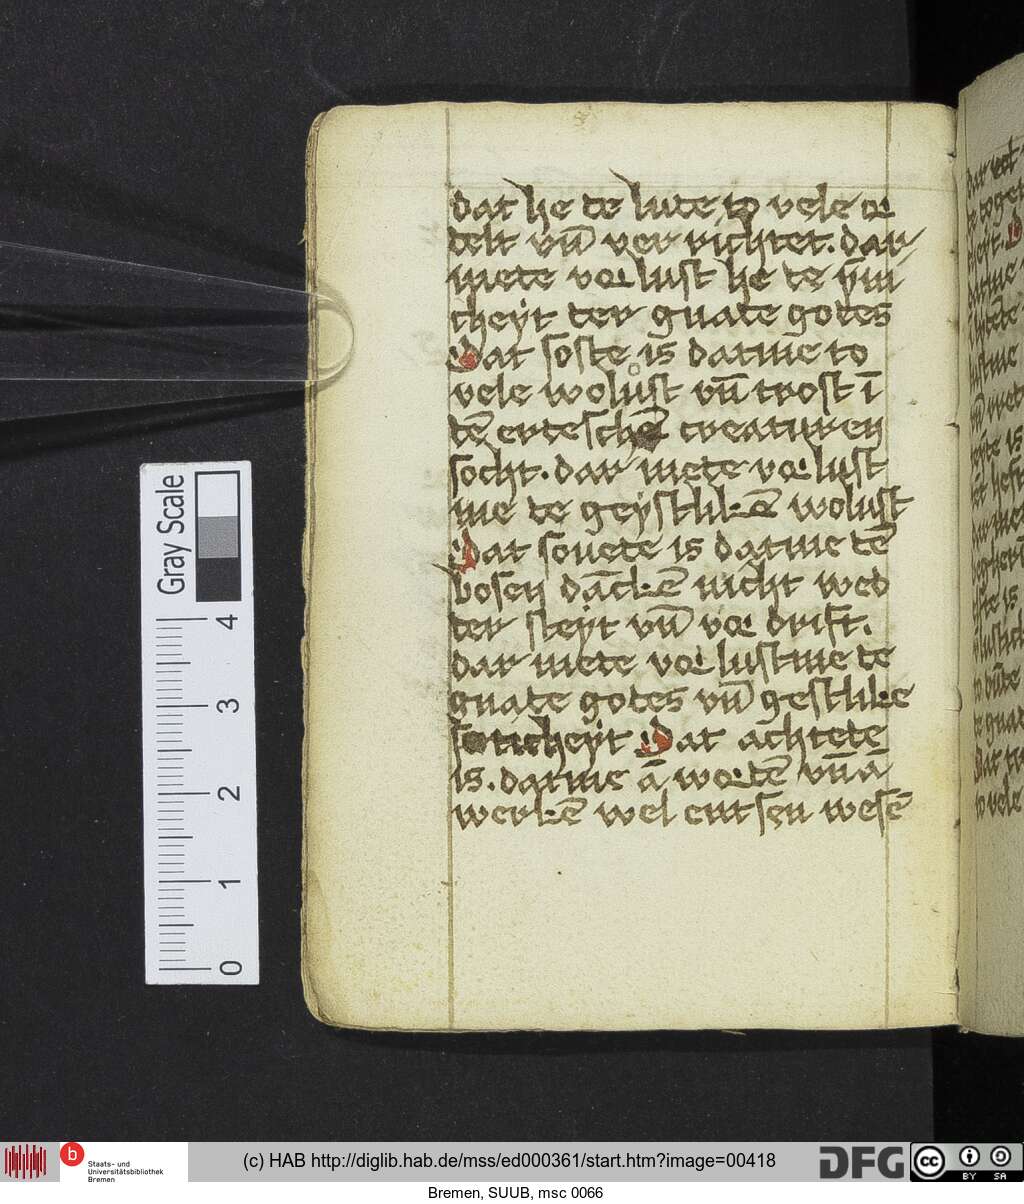 dat he te lute to vele or
telt vn̄ ver richtet. dar
mete vorlust he te ȳin
cheyt ter gnate gotes
Dat soste is datmē to
vele wolůst vn̄ trost ī
tē erteschē creaturen
socht. dar mete vorlust
me te geystlikē wolust
Dat souete is datme tē
bosen dāckē nicht wed
ter steyt vn̄ vor drift.
dar mete vor lustme te
gnate gotes vn̄ gestlike
soticheyt Dat achtete
is. datme ā wortē vn̄ ā
werkē wel entsen wesē
Gray Scale
4
3
2
1
0
b
Staats- und
Universitätsbibliothek
Bremen
(c) HAB http://diglib.hab.de/mss/ed000361/start.htm?image=00418
DFG
cc
BY SA
Bremen, SUUB, msc 0066